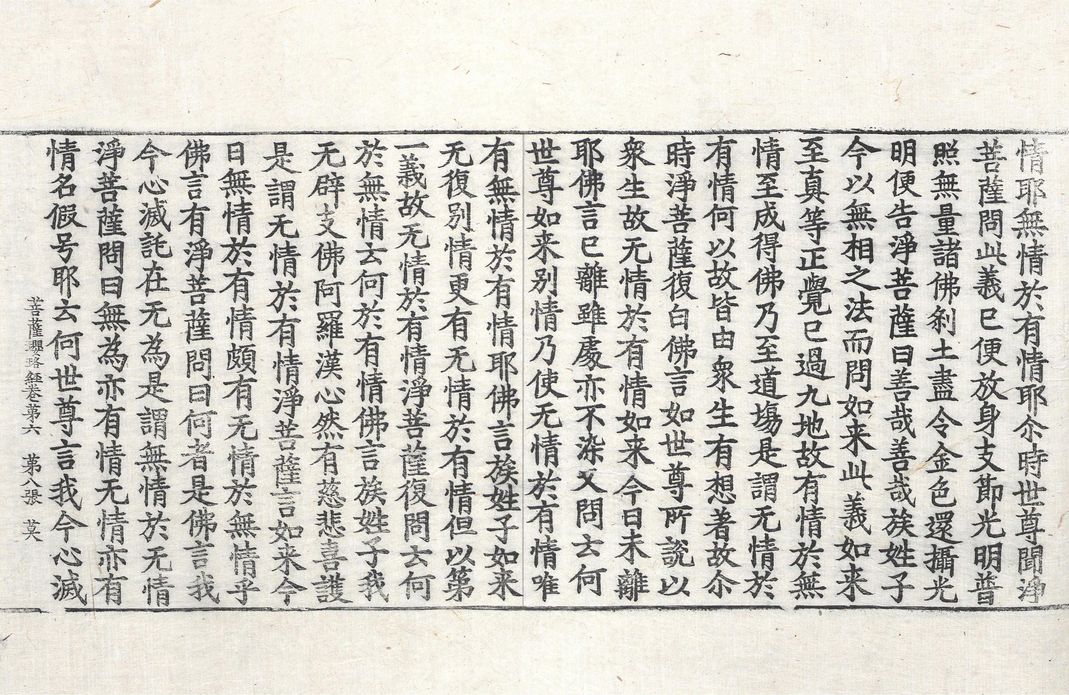 情耶無情於有情耶尒時世尊聞淨
菩薩問此義已便放身支節光明普
照無量諸佛刹土盡令金色還攝光
明便告淨菩薩曰善哉善哉族姓子
今以無相之法而問如来此義如来
至真等正覺已過九地故有情於無
情至成得佛乃至道場是謂无情於
有情何以故皆由衆生有想著故尒
時淨菩薩復白佛言如世尊所說以
衆生故无情於有情如来今日未離
耶佛言已離雖處亦不染又問云何
世尊如来别情乃使无情於有情唯
有無情於有情耶佛言族姓子如来
无復别情更有无情於有情但以第
一義故无情於有情淨菩薩復問云何
於無情云何於有情佛言族姓子我
无辟支佛阿羅漢心然有慈悲喜護
是謂无情於有情淨菩薩言如来今
日無情於有情頗有无情於無情乎
佛言有淨菩薩問曰何者是佛言我
今心滅託在无為是謂無情於无情
淨菩薩問曰無為亦有情无情亦有
情名假号耶云何世尊言我今心滅
菩薩瓔珞經卷第六 第八張 莫